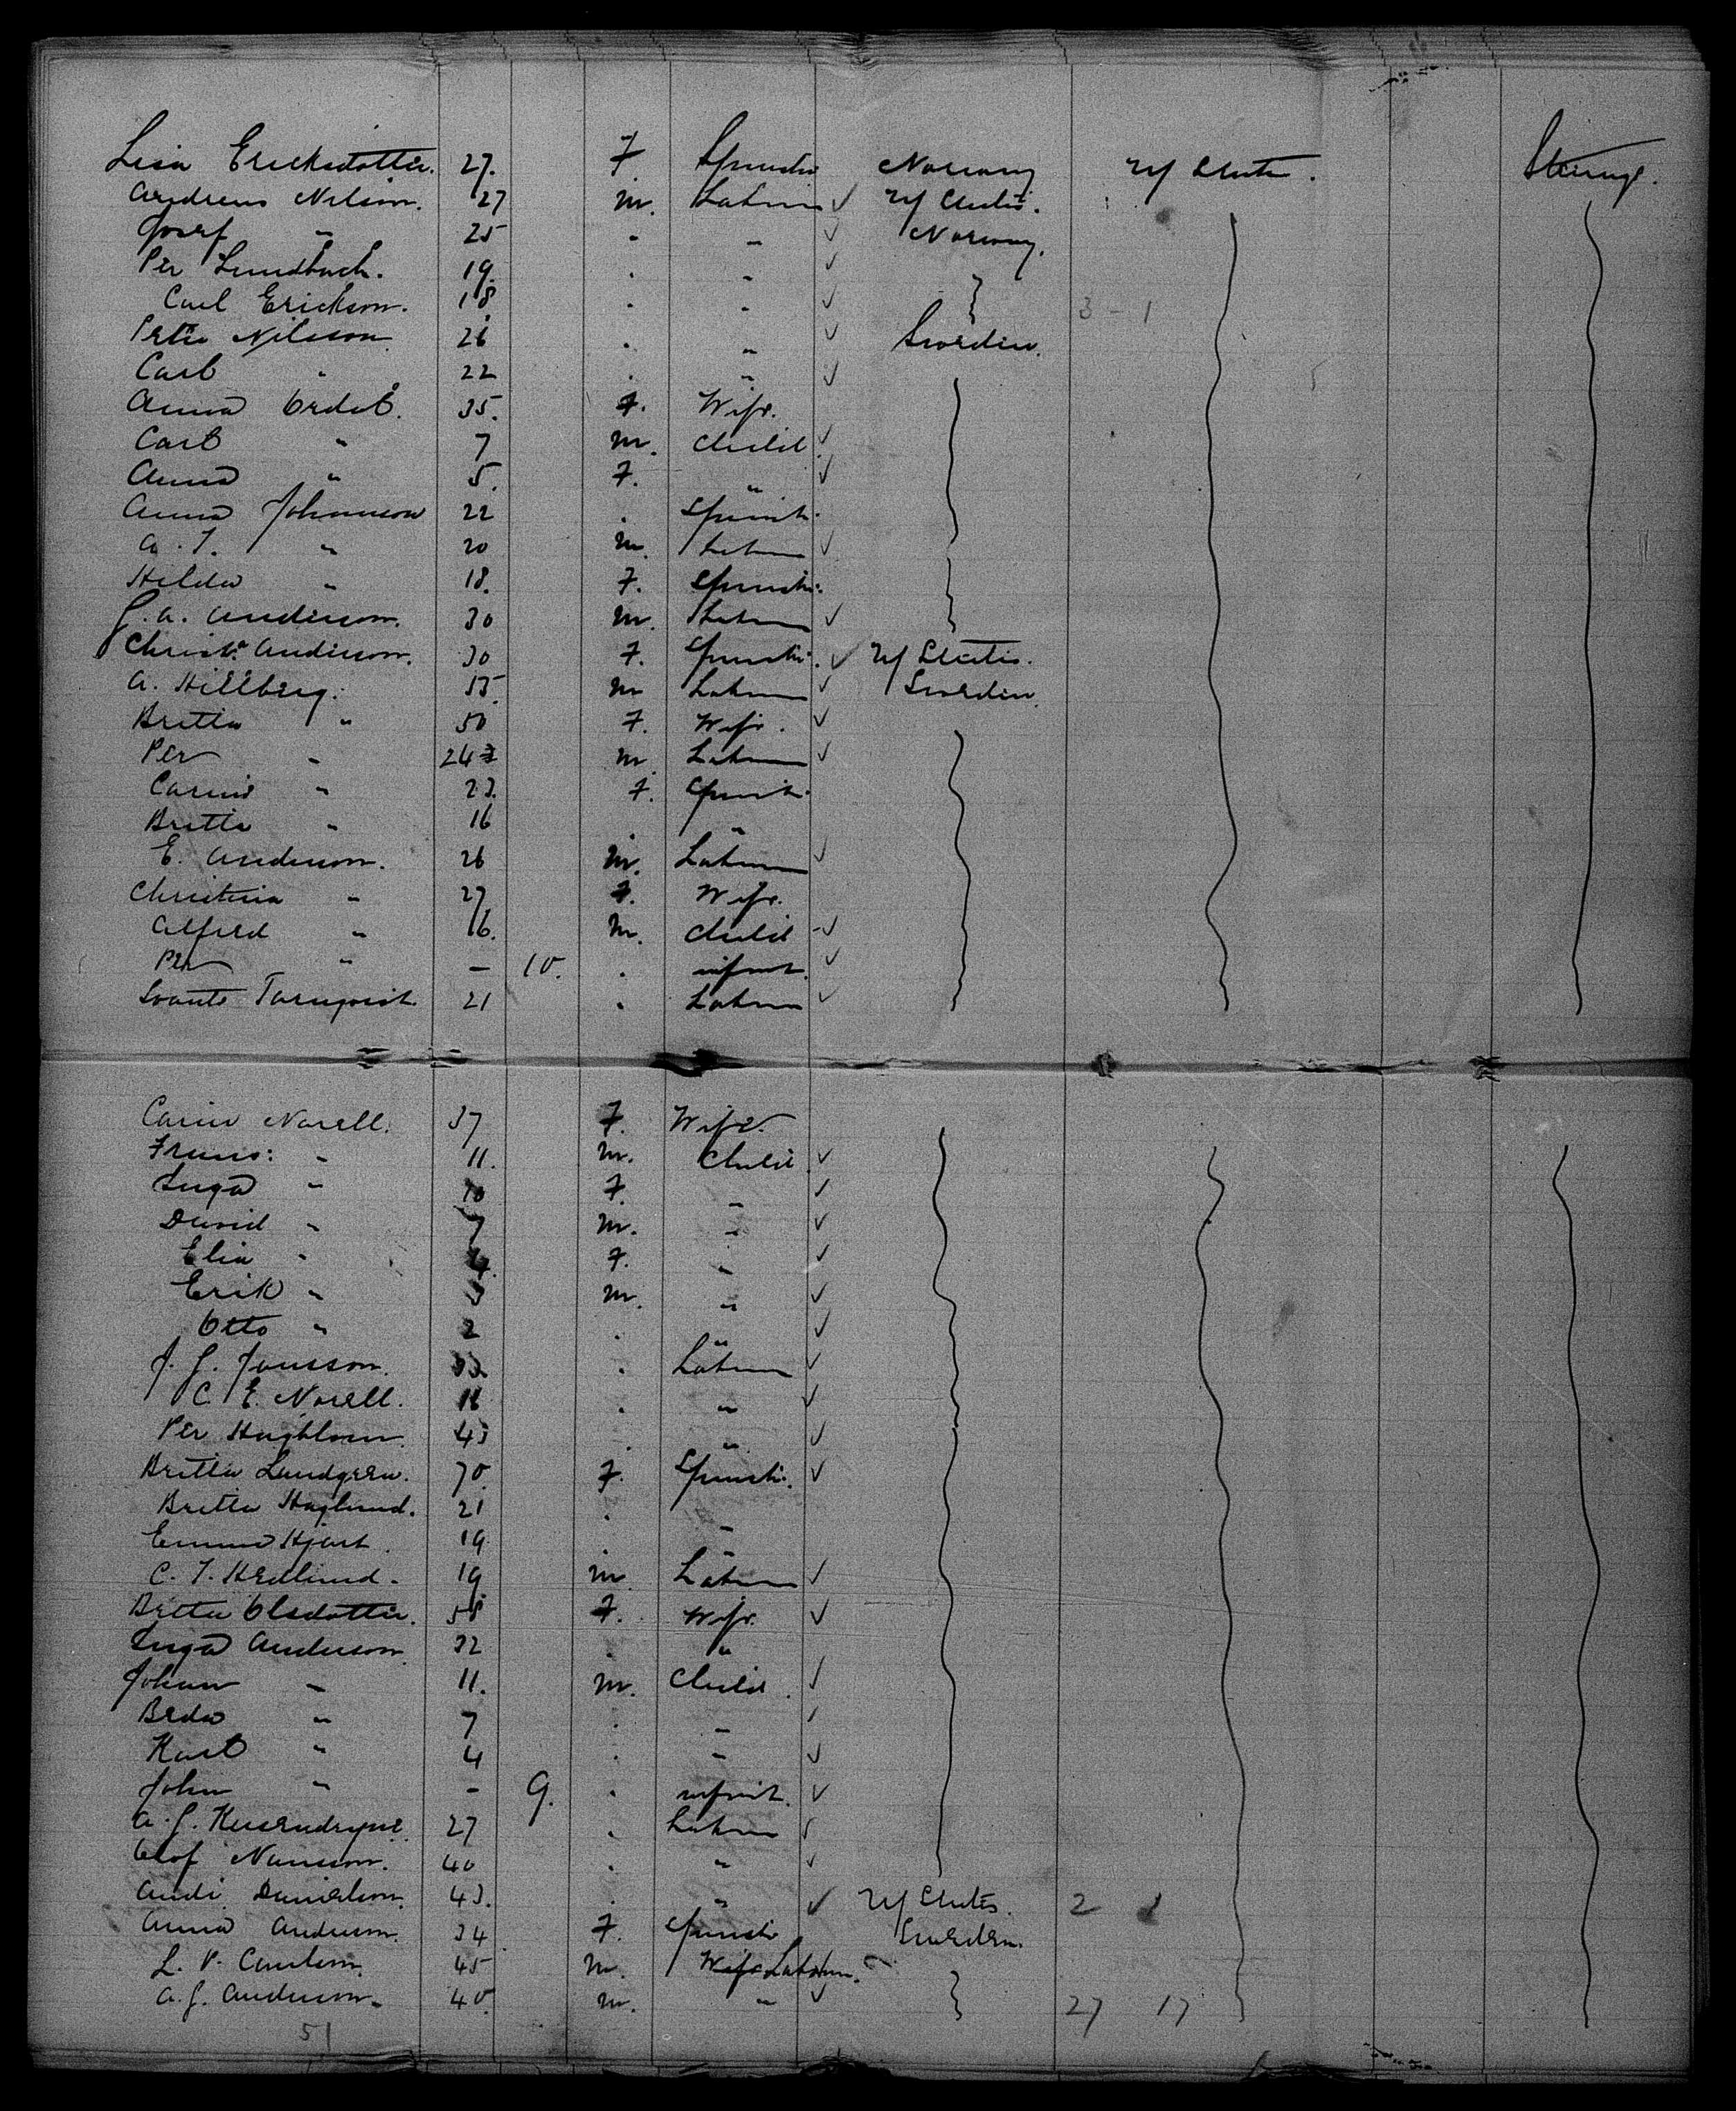 Lisa Ericksdotter. 27. F. Spinster Norway U/ States. Steerage.
Andreas Nilson. 27 m. Labour ✓ U/ States.
Josef " 25 " " ✓ Norway.
Per Lundback. 19. " " ✓
Carl Erickson. 18. " " ✓ 3 - 1
Peter Nilsson 26 " " ✓ Sweden.
Carl " 22 " " ✓
Anna 35. F. Wife.
Carl " 7 m. Child ✓
Anna " 5. F. " ✓
Anna Johannson 22 . Spinst.
A. F. " 20 m. Labour ✓
Hilda " 18. F. Spinster.
J. A. Anderson. 30 m. Labour ✓
Christ. Anderson. 30 F. Spinster. ✓ U/ States.
A. Hillberg. 55 m Labour ✓ Sweden.
Britta " 50 F. Wife. ✓
Per " 24 m. Labour ✓
Carin " 23. F. Spinst.
Britta " 16 "
E. Anderson. 26 m. Labour ✓
Christina " 27 F. Wife.
Alfred " m. Child ✓
Per " - 10. . infant. ✓
Svante Tornqvist 21 . Labour ✓
Carin Norell. 37 F. Wife.
Frans: " 11. m. Child ✓
Inga " 10 F. " ✓
David " 7 m. " ✓
Elin " 4. F. " ✓
Erik " 3 m. " ✓
Otto " 2 . " ✓
J. G. Jonsson. . Labour ✓
C. E. Norell. 18 . " ✓
Per Hagblom. 43 . " ✓
Britta Lundgren. 70. F. Spinster. ✓
Britta Haglund. 21 . "
Emma Hjort. 19 "
C. F. Hedlund. 19 m. Labour ✓
Britta Olsdotter. 58 F. Wife. ✓
Inga Anderson 32 . "
Johan " 11. m. Child. ✓
Beda " 7 . " ✓
Karl " 4 . " ✓
John " - 9. . infant. ✓
A. J. 27 . Labour ✓
Olof Nansson. 40 . " ✓
Andr. Danielson. 43. . " ✓ U/ States. 2 1
Anna Anderson. 34 F. Spinster Sweden.
L. P. Carlson. 45 m. Wife Labour.
A. J. Anderson. 40. m. " ✓ 27 17
51